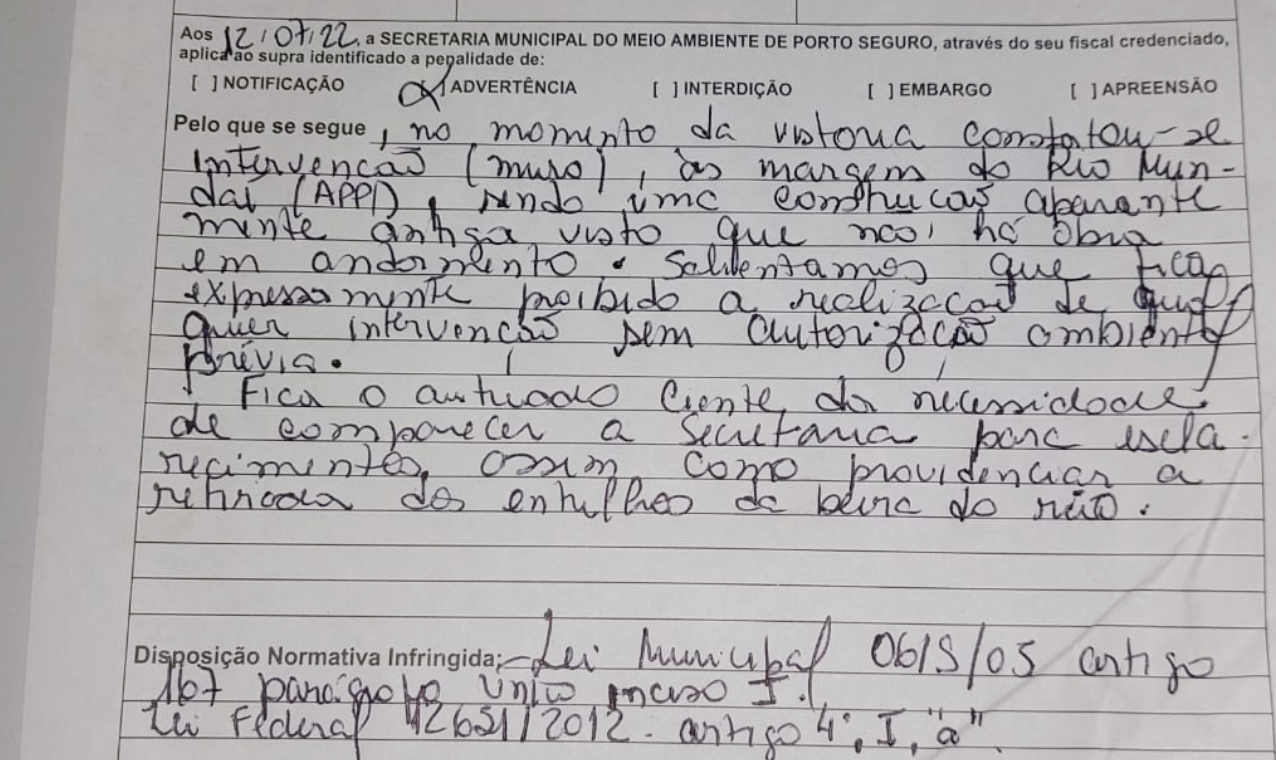 Aos 12/07/22, a SECRETARIA MUNICIPAL DO MEIO AMBIENTE DE PORTO SEGURO, através do seu fiscal credenciado,
aplica ao supra identificado a penalidade de:
[ ] NOTIFICAÇÃO [X] ADVERTÊNCIA [ ] INTERDIÇÃO [ ] EMBARGO [ ] APREENSÃO
Pelo que se segue, no momento da vistoria constatou-se
intervenção (muro), às margem do Rio Mun-
daí (APP), sendo uma construção aparante
mente antiga visto que não há obra
em andamento. Salientamos que fica
expressamente proibido a realização de qual
quer intervenção sem autorização ambiental
prévia.
Fica o autuado ciente da necessidade
de comparecer a secretaria para escla-
recimentos, assim como providenciar a
retirada dos entulhos da beira do rio.
Disposição Normativa Infringida: Lei Municipal 0619/05 artigo
167 parágrafo único inciso I.
Lei Federal 12651/2012. artigo 4°, I, "a".